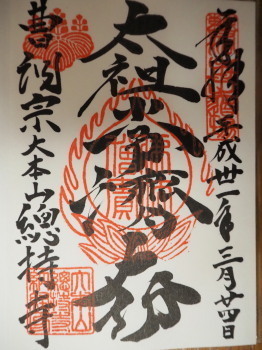 奉拝 平成卅一年三月廿四日
太祖常濟大師
曹洞宗大本山總持寺